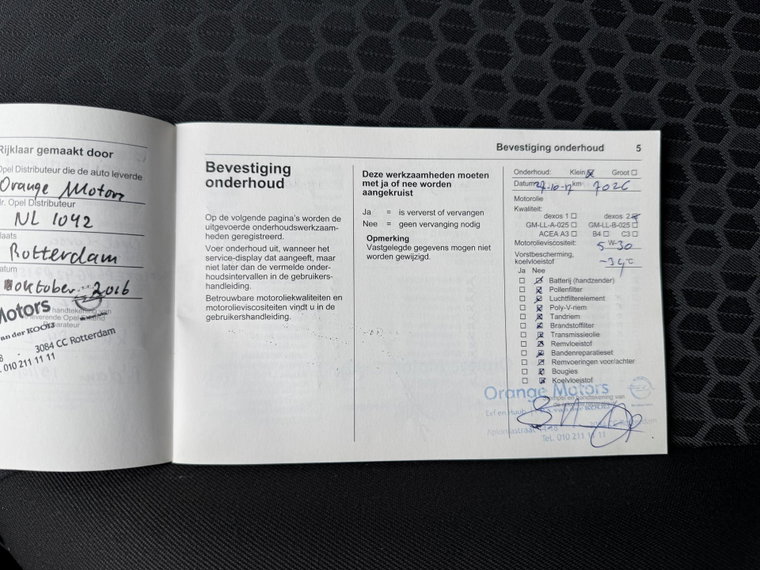 Rijklaar gemaakt door
Opel Distributeur die de auto leverde
Orange Motors
Nr. Opel Distributeur
NL 1042
Plaats
Rotterdam
Datum
oktober 2016
Motors
van der KOOIJ
3084 CC Rotterdam
010 211 11 11
Bevestiging onderhoud 5
Bevestiging
onderhoud
Op de volgende pagina's worden de
uitgevoerde onderhoudswerkzaam-
heden geregistreerd.
Voer onderhoud uit, wanneer het
service-display dat aangeeft, maar
niet later dan de vermelde onder-
houdsintervallen in de gebruikers-
handleiding.
Betrouwbare motoroliekwaliteiten en
motorolieviscositeiten vindt u in de
gebruikershandleiding.
Deze werkzaamheden moeten
met ja of nee worden
aangekruist
Ja = is ververst of vervangen
Nee = geen vervanging nodig
Opmerking
Vastgelegde gegevens mogen niet
worden gewijzigd.
Onderhoud: Klein Groot
Datum 27-10-17 km: 7026
Motorolie
Kwaliteit:
dexos 1 dexos 2
GM-LL-A-025 GM-LL-B-025
ACEA A3 B4 C3
Motorolieviscositeit: 5 W-30
Vorstbescherming,
koelvloeistof -34 °C
Ja Nee
Batterij (handzender)
Pollenfilter
Luchtfilterelement
Poly-V-riem
Tandriem
Brandstoffilter
Transmissieolie
Remvloeistof
Bandenreparatieset
Remvoeringen voor/achter
Bougies
Koelvloeistof
Orange Motors
Tel. 010 211 11 11